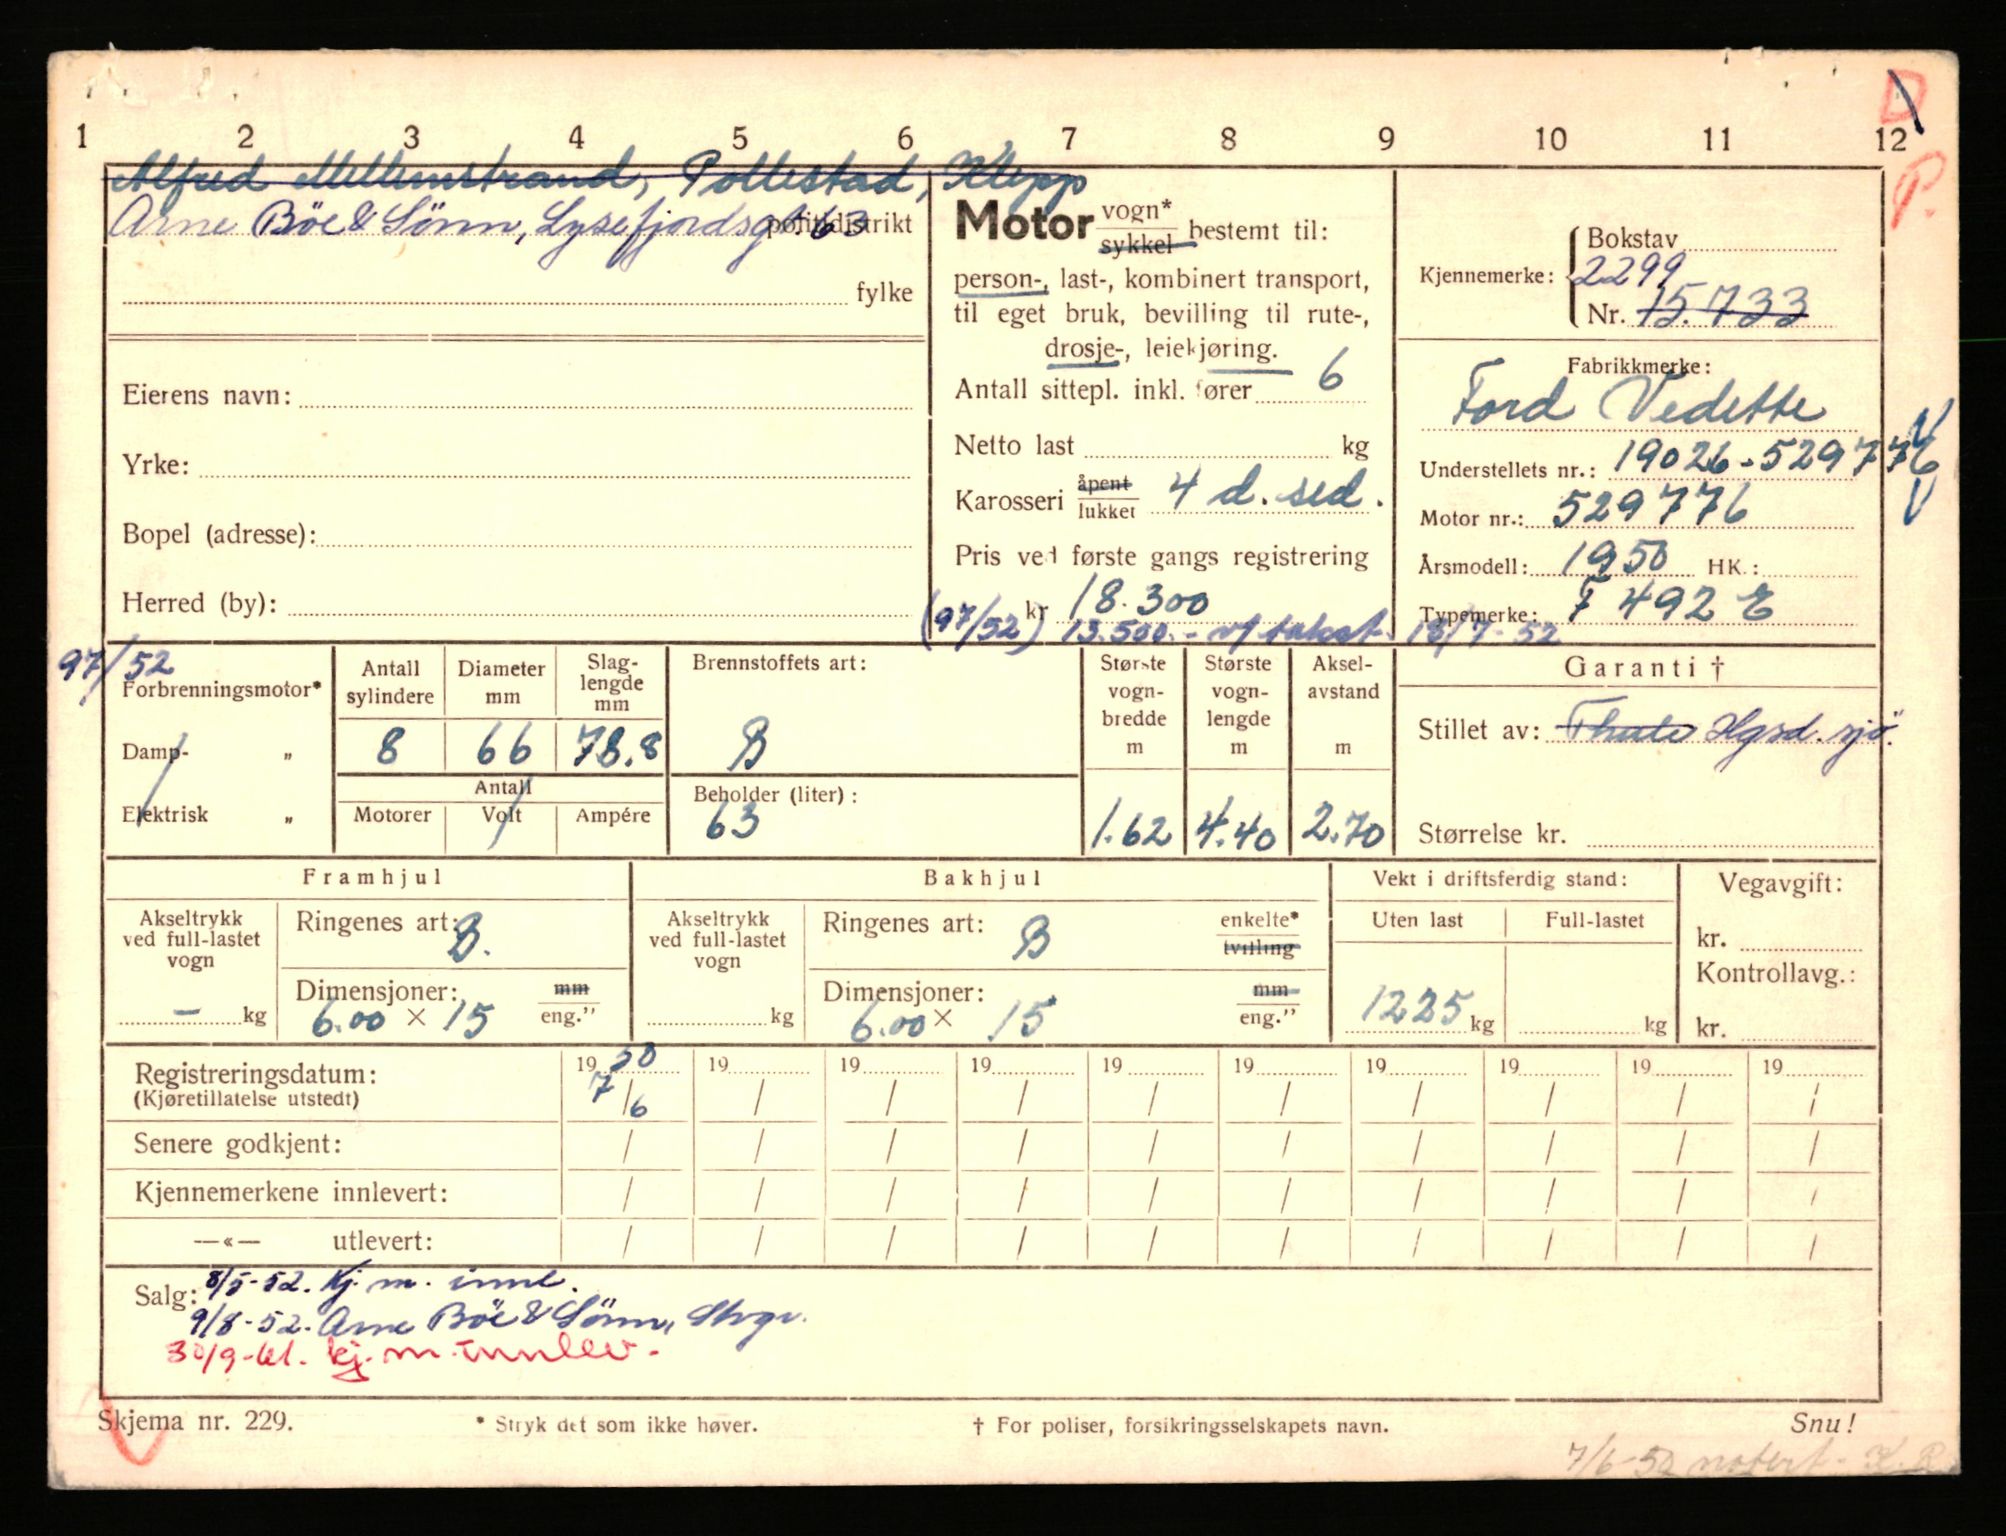 D
P.
1 2 3 4 5 6 7 8 9 10 11 12
Alfred Mellemstrand, Pollestad, Klepp
Arne Böe & Sönn, Lysefjordsgt. 63 politidistrikt
fylke
Eierens navn:
Yrke:
Bopel (adresse):
Herred (by):
Motor vogn* sykkel bestemt til:
person-, last-, kombinert transport,
til eget bruk, bevilling til rute-,
drosje-, leiekjøring.
Antall sittepl. inkl. fører 6
Netto last kg
Karosseri åpent lukket 4 d. sed.
Pris ved første gangs registrering
kr 18.300
(97/52) 13.500.- v/ takst. 18/7-52
Bokstav
Kjennemerke: 2299
Nr. 15.733
Fabrikkmerke:
Ford Vedette
Understellets nr.: 19026-529776
Motor nr.: 529776
Årsmodell: 1950 HK.:
Typemerke: F 492 E
97/52
Forbrenningsmotor*
Damp- „
Elektrisk „
Antall sylindere
Diameter mm
Slag-lengde mm
8 66 78.8
Antall
Motorer Volt Ampére
Brennstoffets art:
B
Beholder (liter):
63
Største vogn-bredde m
Største vogn-lengde m
Aksel-avstand m
1.62 4.40 2.70
Garanti †
Stillet av: Hgsd. sjö.
Størrelse kr.
Framhjul
Akseltrykk ved full-lastet vogn
— kg
Ringenes art: B.
Dimensjoner: mm
6.00 × 15 eng.”
Bakhjul
Akseltrykk ved full-lastet vogn
kg
Ringenes art: B enkelte* tvilling
Dimensjoner: mm
6.00 × 15 eng.”
Vekt i driftsferdig stand:
Uten last Full-lastet
1225 kg kg
Vegavgift:
kr.
Kontrollavg.:
kr.
Registreringsdatum: 1950 19 19 19 19 19 19 19 19 19
(Kjøretillatelse utstedt) 7/6 / / / / / / / / /
Senere godkjent: / / / / / / / / / /
Kjennemerkene innlevert: / / / / / / / / / /
—«— utlevert: / / / / / / / / / /
Salg: 8/5-52. Kj. m. innl.
9/8-52. Arne Böe & Sönn, Stvgr.
30/9-61. kj. m. innlev.
Skjema nr. 229.
* Stryk det som ikke høver.
† For poliser, forsikringsselskapets navn.
Snu!
7/6-52 notert. K. R.